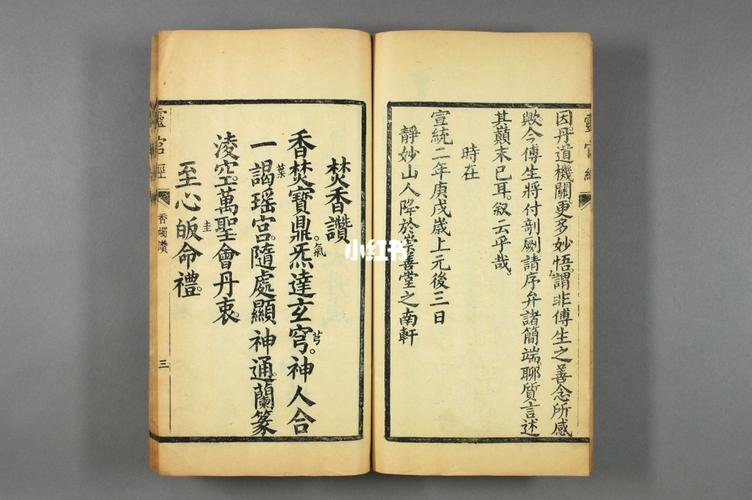 靈官經
因丹道機關更多妙悟謂非傅生之善念所感
歟今傅生將付剞劂請序弁諸簡端聊質言述
其巔末已耳叙云乎哉
時在
宣統二年庚戌歲上元後三日
靜妙山人降於崇善堂之南軒
焚香讚
香焚寶鼎。炁氣達玄穹芎。神人合
一謁葉瑶宮。隨處顯神通。蘭篆
凌空。萬聖會丹衷。
至心皈圭命禮。
靈官經 香燭讚 三
小红书